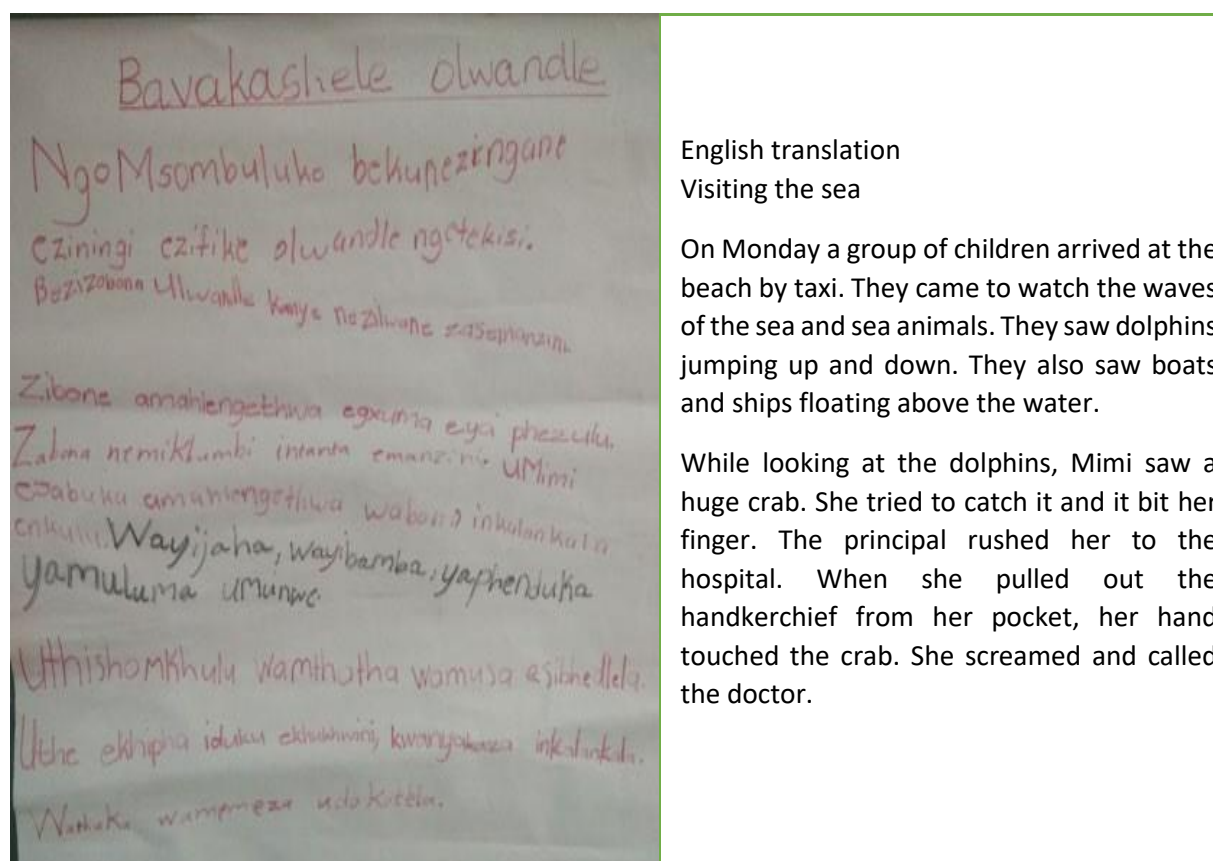 Bavakashele olwandle
NgoMsombuluko bekunezingane
eziningi ezifike olwandle ngetekisi.
Bezizobona Ulwandle kanye nezilwane zasemanzini
Zibone amahlengethwa egxuma eya phezulu.
Zabona nemikhumbi intanta emanzini UMimi
esabuka amahlengethwa wabona inkalankala
enkulu. Wayijaha, wayibamba, yaphenduka
yamuluma umunwe.
Uthishomkhulu wamthatha wamusa esibhedlela.
Uthe ekhipha iduku ekhukhwini, kwanyakaza inkalankala.
Wathuka wamemeza udokotela.
English translation
Visiting the sea
On Monday a group of children arrived at the
beach by taxi. They came to watch the waves
of the sea and sea animals. They saw dolphins
jumping up and down. They also saw boats
and ships floating above the water.
While looking at the dolphins, Mimi saw a
huge crab. She tried to catch it and it bit her
finger. The principal rushed her to the
hospital. When she pulled out the
handkerchief from her pocket, her hand
touched the crab. She screamed and called
the doctor.